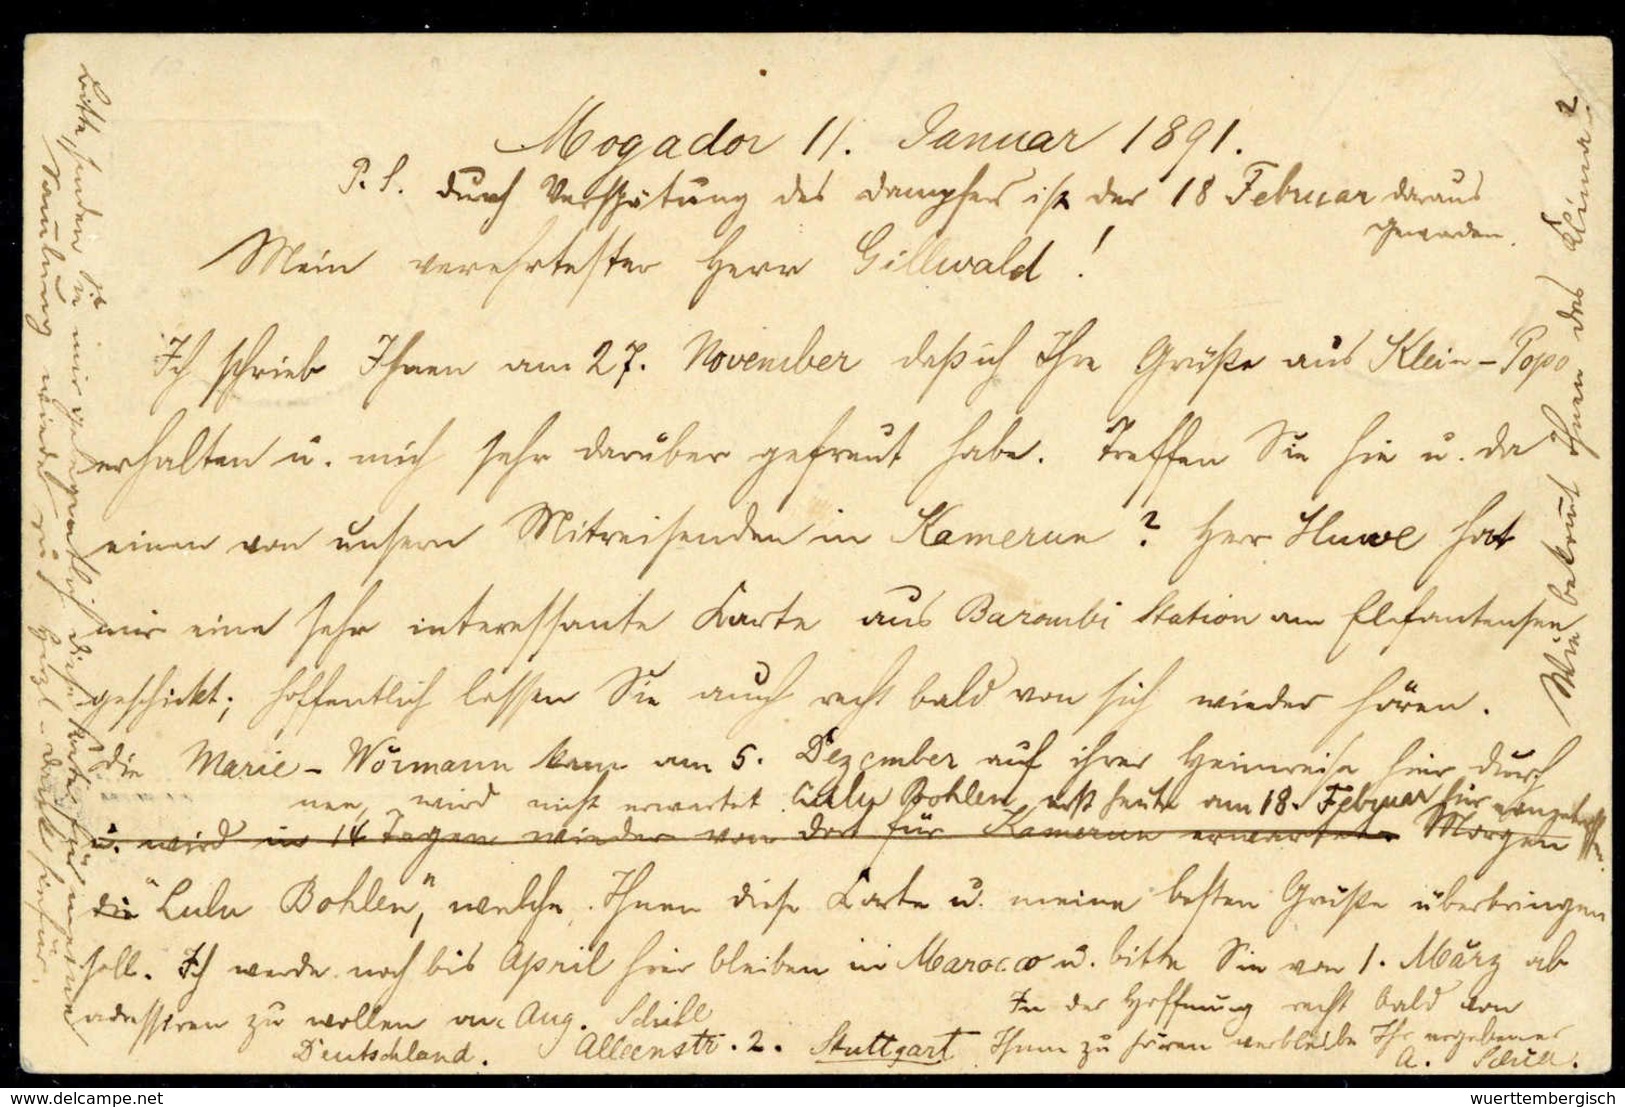 Mogador 11. Januar 1891.
P.S. durch Verspätung des Dampfers ist der 18 Februar daraus
geworden.
Mein verehrtester Herr Gillwald!
Ich schrieb Ihnen am 27. November daß ich Ihre Grüße aus Klein-Popo
erhalten u. mich sehr darüber gefreut habe. Treffen Sie hie u. da
einen von unsern Mitreisenden in Kamerun? Herr Huwe hat
mir eine sehr interessante Karte aus Barombi Station am Elefantensee
geschickt; hoffentlich lassen Sie auch recht bald von sich wieder hören.
die Marie-Wörmann kam am 5. Dezember auf ihrer Heimreise hier durch
wird nicht erwartet. Lulu Bohlen erst heute am 18. Februar hier eingetroffen
u. wird in 14 Tagen wieder von dort für Kamerun erwartet. Morgen
die "Lulu Bohlen", welche Ihnen diese Karte u. meine besten Grüße überbringen
soll. Ich werde noch bis April hier bleiben in Marocco u. bitte Sie von 1. März ab
adressiren zu wollen an: Aug. Schill
Alleenstr. 2. Stuttgart
Deutschland.
In der Hoffnung recht bald von
Ihnen zu hören verbleibe Ihr ergebener
A. Schill.
Wie bekommt Ihnen das Klima?
Bitte, senden Sie mir gelegentlich diese Karte für meine
Samlung wieder zu, herzl. Dank hiefür.
www.delcampe.net
wuerttembergisch